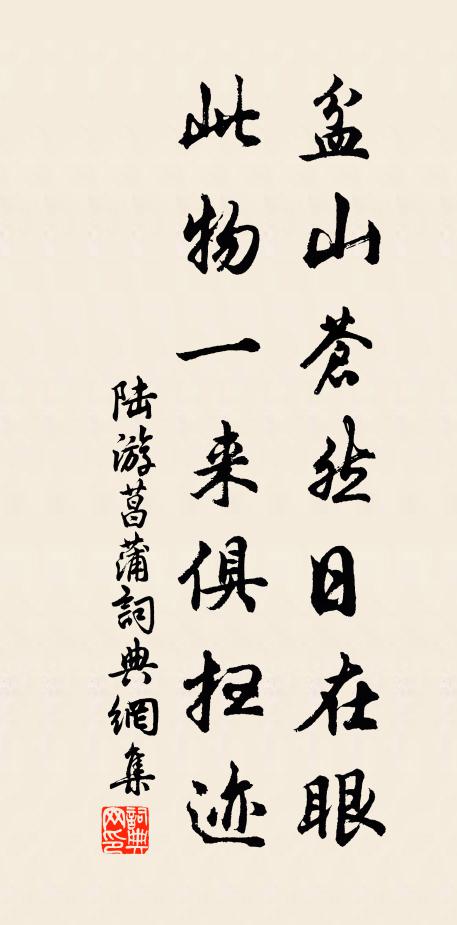 盆山蒼然日在眼
此物一来俱扫迹
陆游菖蒲詞典網集
詞典网印